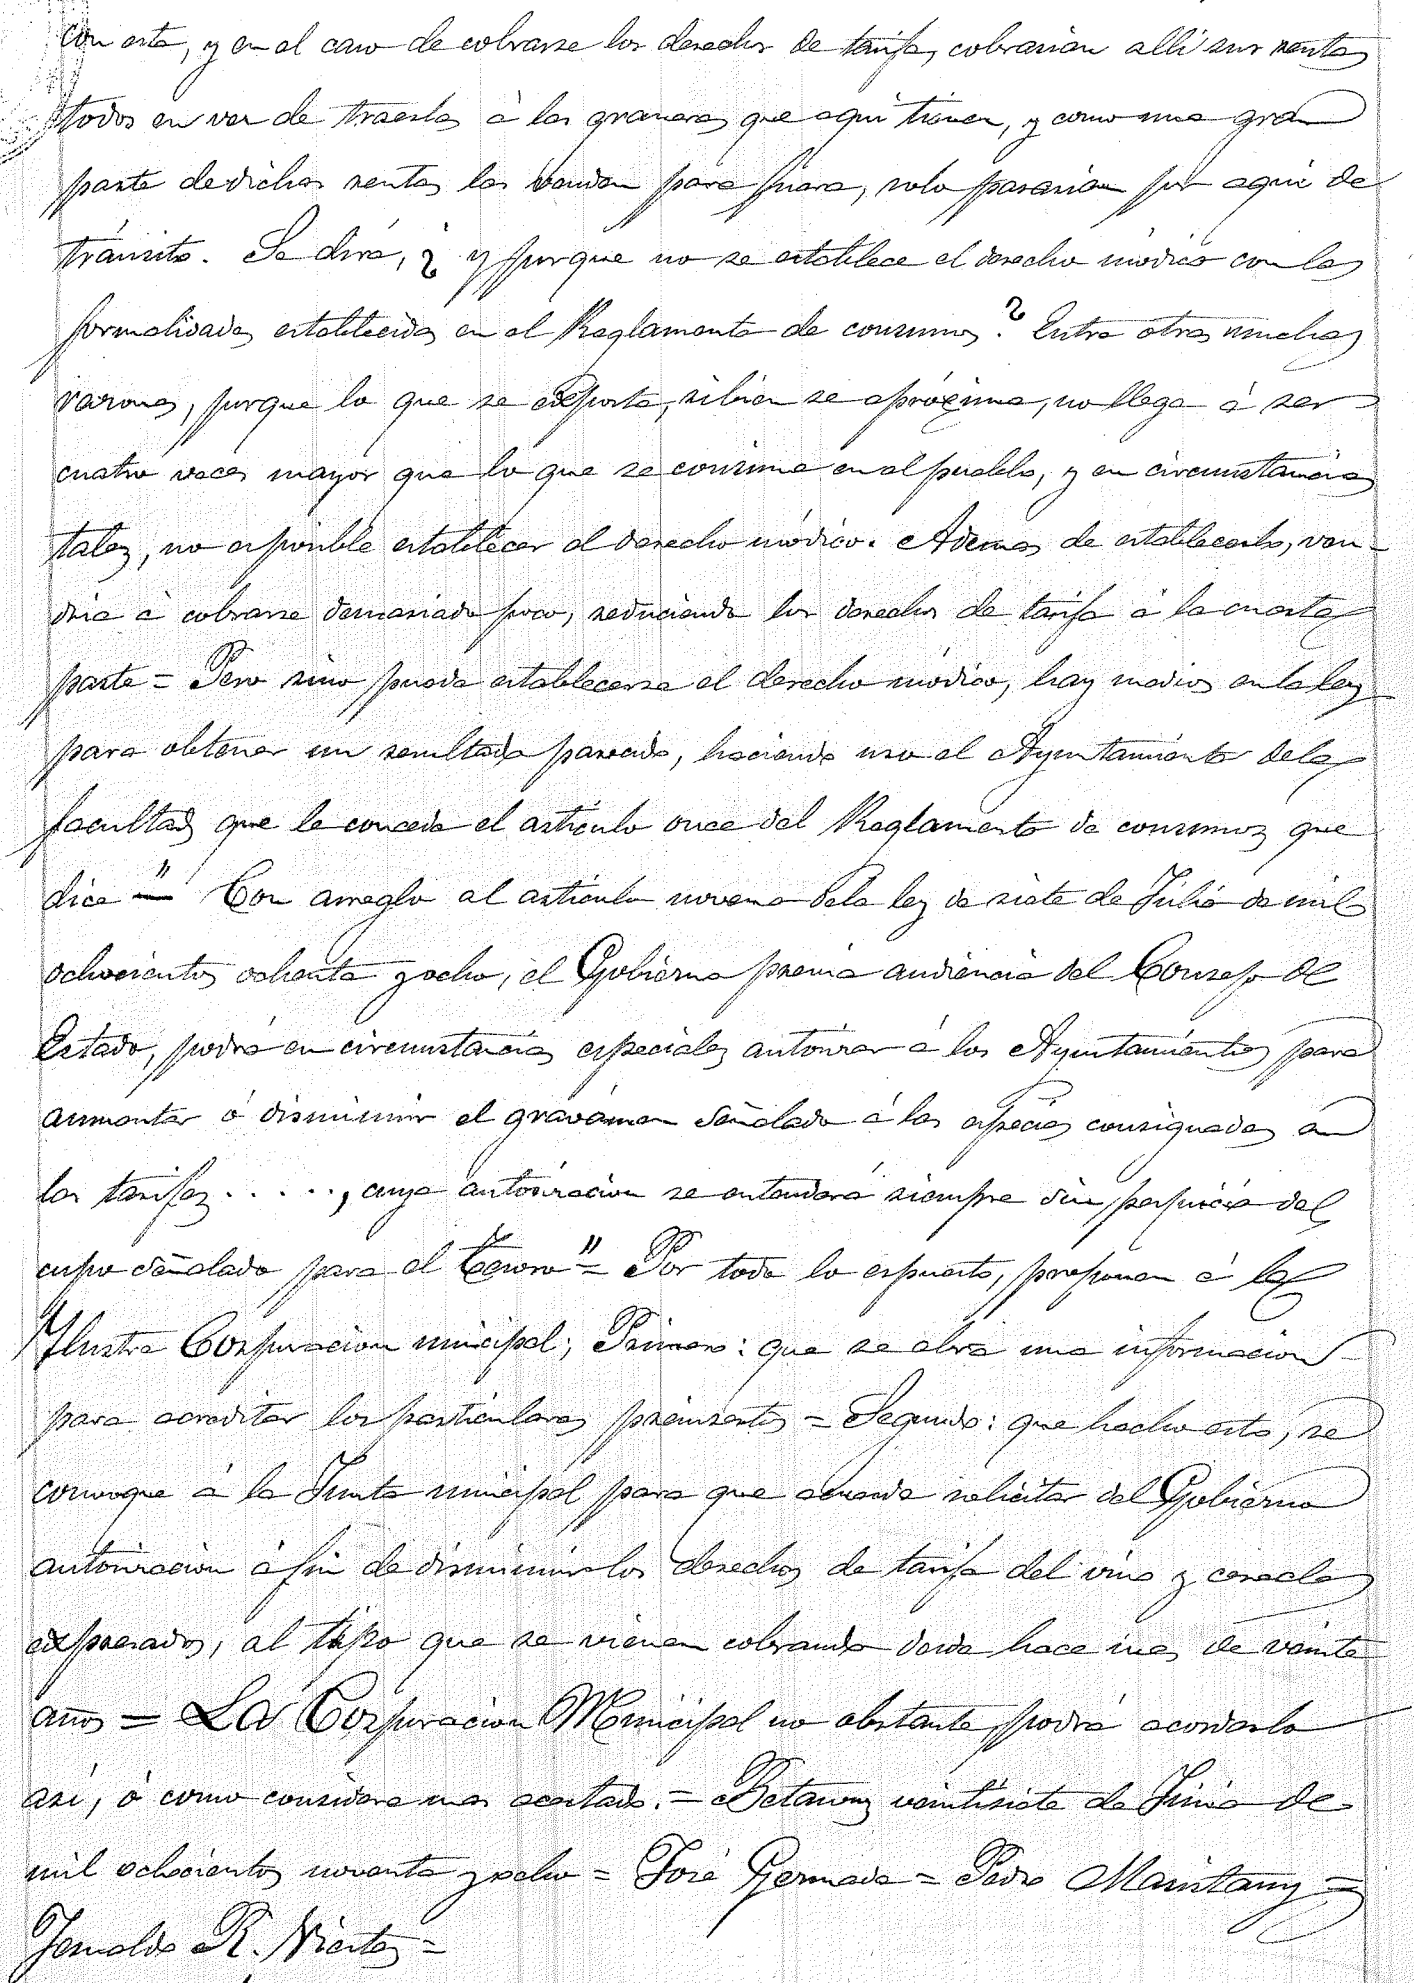 con esta, y en el caso de cobrarse los derechos de tarifa, cobrarian alli sus rentas
todos en vez de traerlas á las graneras que aqui tienen, y como una gran
parte de dichas rentas las venden para fuera, solo pasarian por aqui de
tránsito. Se dirá, ¿ y porque no se establece el derecho módico con las
formalidades establecidas en el Reglamento de consumos? Entre otras muchas
razones, porque lo que se exporta, si bien se apróxima, no llega á ser
cuatro veces mayor que lo que se consume en el pueblo, y en circunstancias
tales, no es posible establecer el derecho módico. Ademas de establecerlo, ven-
dria á cobrarse demasiado poco, reduciendo los derechos de tarifa á la cuarta
parte = Pero sino puede establecerse el derecho módico, hay medios en la ley
para obtener un resultado parecido, haciendo uso el Ayuntamiento de la
facultad que le concede el articulo once del Reglamento de consumos que
dice " Con arreglo al articulo noveno de la ley de siete de Julio de mil
ochocientos ochenta y ocho, el Gobierno prévia audiencia del Consejo de
Estado, podrá en circunstancias especiales autorizar á los Ayuntamientos para
aumentar ó disminuir el gravámen señalado á las especies consignadas en
las tarifas . . . . . , cuya autorizacion se entenderá siempre sin perjuicio del
cupo señalado para el Tesoro" = Por todo lo espuesto, proponen á la
Ylustre Corporacion municipal; Primero: que se abra una informacion
para acreditar los particulares preinsertos = Segundo: que hecho esto, se
convoque á la Junta municipal para que acuerde solicitar del Gobierno
autorizacion á fin de disminuir los derechos de tarifa del vino y cereales
expresados, al tipo que se vienen cobrando desde hace mas de veinte
años = La Corporacion Municipal no obstante podrá acordarlo
asi, ó como considere mas acertado. = Betanzos veintisiete de Junio de
mil ochocientos noventa y ocho = José Germade = Pedro Maristany =
R.